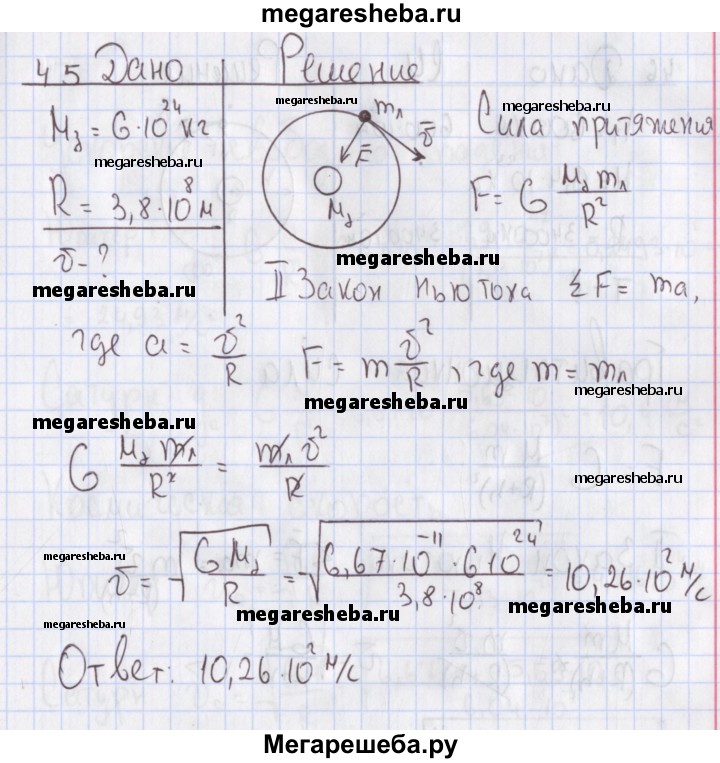 megaresheba.ru
45 Дано Решение
megaresheba.ru
Mз = 6·10²⁴ кг
mл
megaresheba.ru
F̅
v̅
Mз
Сила притяжения
megaresheba.ru
megaresheba.ru
R = 3,8·10⁸ м
F = G Mз mл / R²
v - ?
megaresheba.ru
megaresheba.ru
II Закон Ньютона ΣF = ma,
где a = v²/R F = m v²/R, где m = mл
megaresheba.ru
megaresheba.ru
G Mз mл / R² = mл v² / R
megaresheba.ru
megaresheba.ru
v = √(G Mз / R) = √(6,67·10⁻¹¹ · 6·10²⁴ / 3,8·10⁸) = 10,26·10² м/с
megaresheba.ru
megaresheba.ru
megaresheba.ru
Ответ: 10,26·10² м/с
Мегарешеба.ру